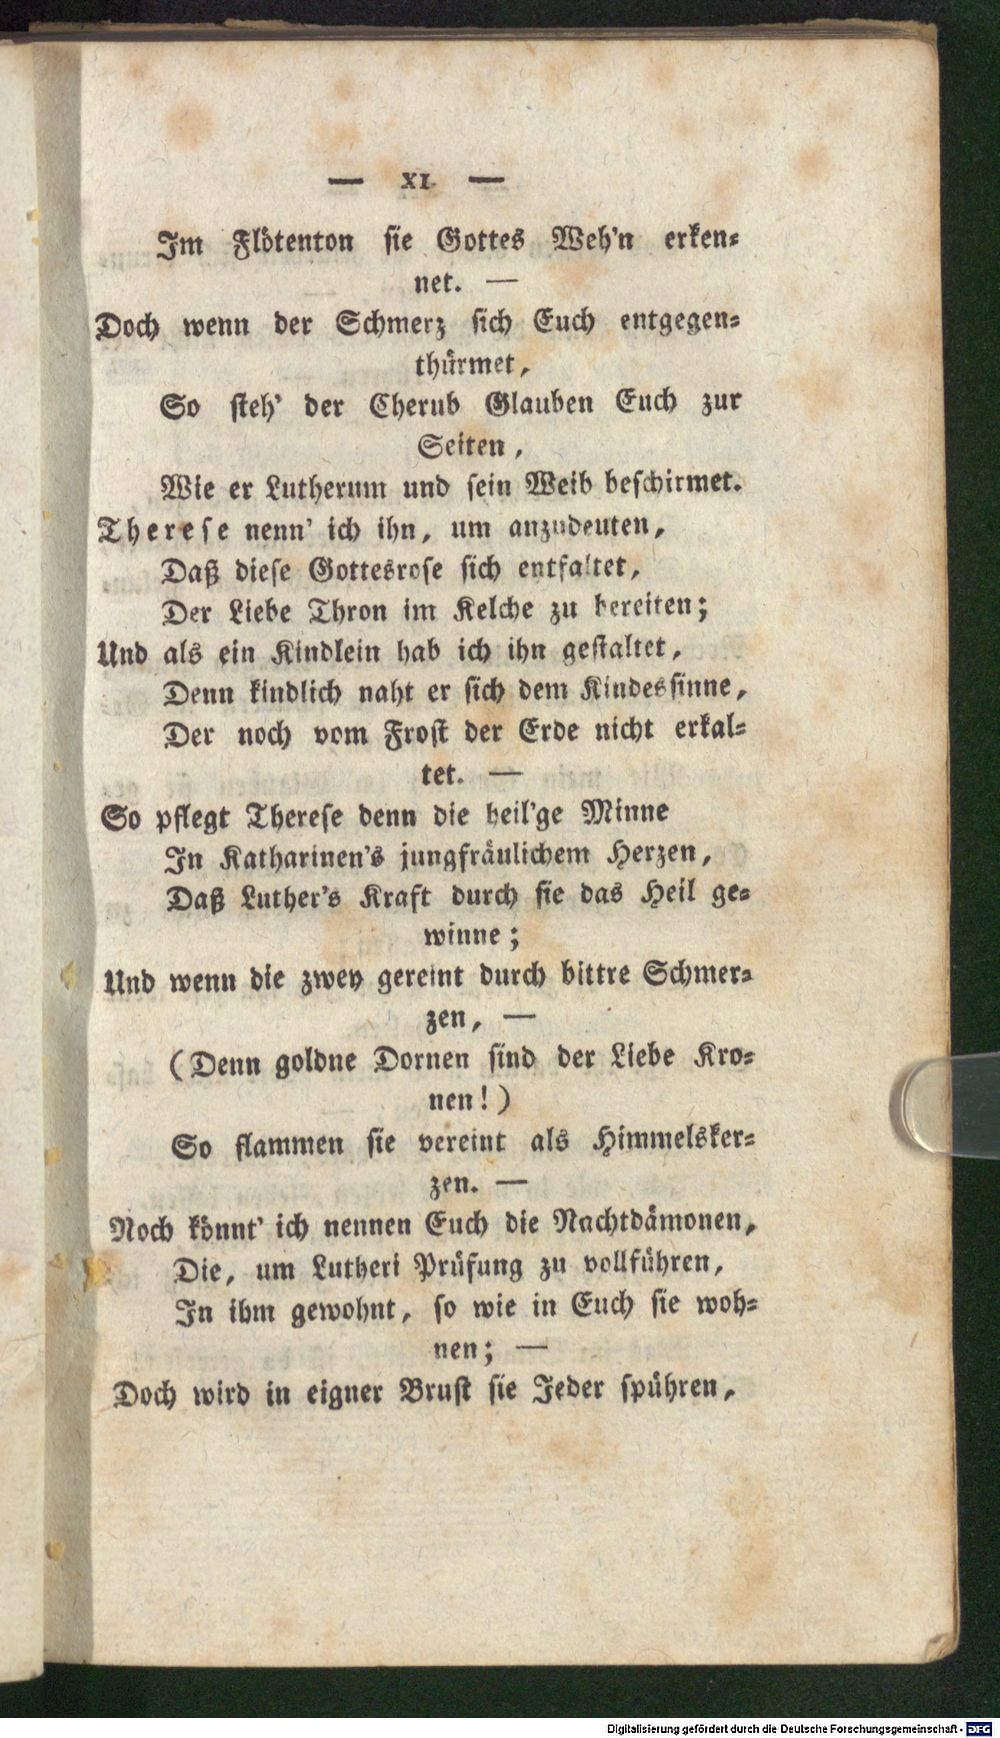 — XI. —
Im Flötenton sie Gottes Weh'n erken-
net. —
Doch wenn der Schmerz sich Euch entgegen-
thürmet,
So steh' der Cherub Glauben Euch zur
Seiten,
Wie er Lutherum und sein Weib beschirmet.
Therese nenn' ich ihn, um anzudeuten,
Daß diese Gottesrose sich entfaltet,
Der Liebe Thron im Kelche zu bereiten;
Und als ein Kindlein hab ich ihn gestaltet,
Denn kindlich naht er sich dem Kindessinne,
Der noch vom Frost der Erde nicht erkal-
tet. —
So pflegt Therese denn die heil'ge Minne
In Katharinen's jungfräulichem Herzen,
Daß Luther's Kraft durch sie das Heil ge-
winne;
Und wenn die zwey gereint durch bittre Schmer-
zen, —
(Denn goldne Dornen sind der Liebe Kro-
nen!)
So flammen sie vereint als Himmelsker-
zen. —
Noch könnt' ich nennen Euch die Nachtdämonen,
Die, um Lutheri Prüfung zu vollführen,
In ihm gewohnt, so wie in Euch sie woh-
nen; —
Doch wird in eigner Brust sie Jeder spühren,
Digitalisierung gefördert durch die Deutsche Forschungsgemeinschaft - DFG